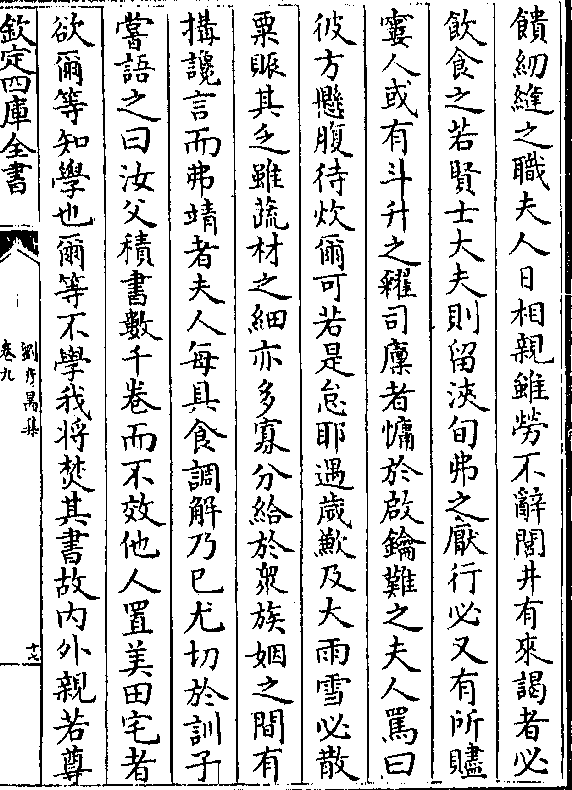 饋紉縫之職夫人日相親雖勞不辭閭井有來謁者必
飲食之若賢士大夫則留浹旬弗之厭行必又有所贐
窶人或有斗升之糴司廩者慵於啟鑰難之夫人罵曰
彼方懸腹待炊爾可若是怠耶遇歲歉及大雨雪必散
粟賑其乏雖蔬材之細亦多寡分給於衆族姻之間有
搆讒言而弗靖者夫人每具食調解乃已尤切於訓子
嘗語之曰汝父積書數千卷而不效他人置美田宅者
欲爾等知學也爾等不學我將焚其書故内外親若尊
欽定四庫全書
劉彦昺集
卷九
十七